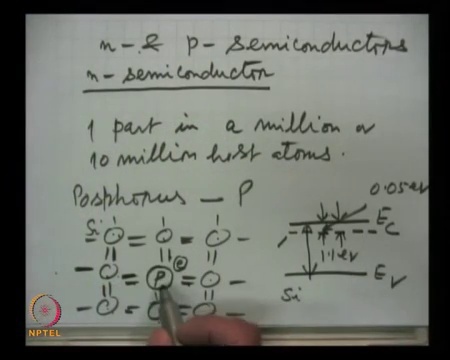 n- & p- semiconductors
n-semiconductor
1 part in a million or
10 million host atoms.
Posphorus — P
0.05eV
Si
EC
e
P
1.1eV
EV
Si
NPTEL